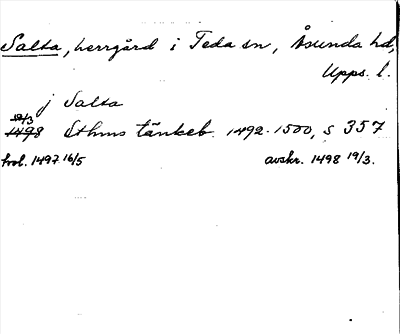 Salta, herrgård i Teda sn, Åsunda hd,
Upps. l.
j Salta
19/3
1498 Sthms tänkeb. 1492-1500, s 357
kvol. 1497 16/5 avskr. 1498 19/3.